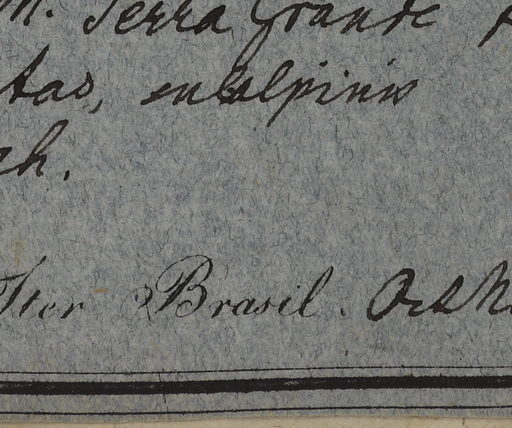 M. Serra Grande
tas, subalpinis
ch.
Iter Brasil. Oct